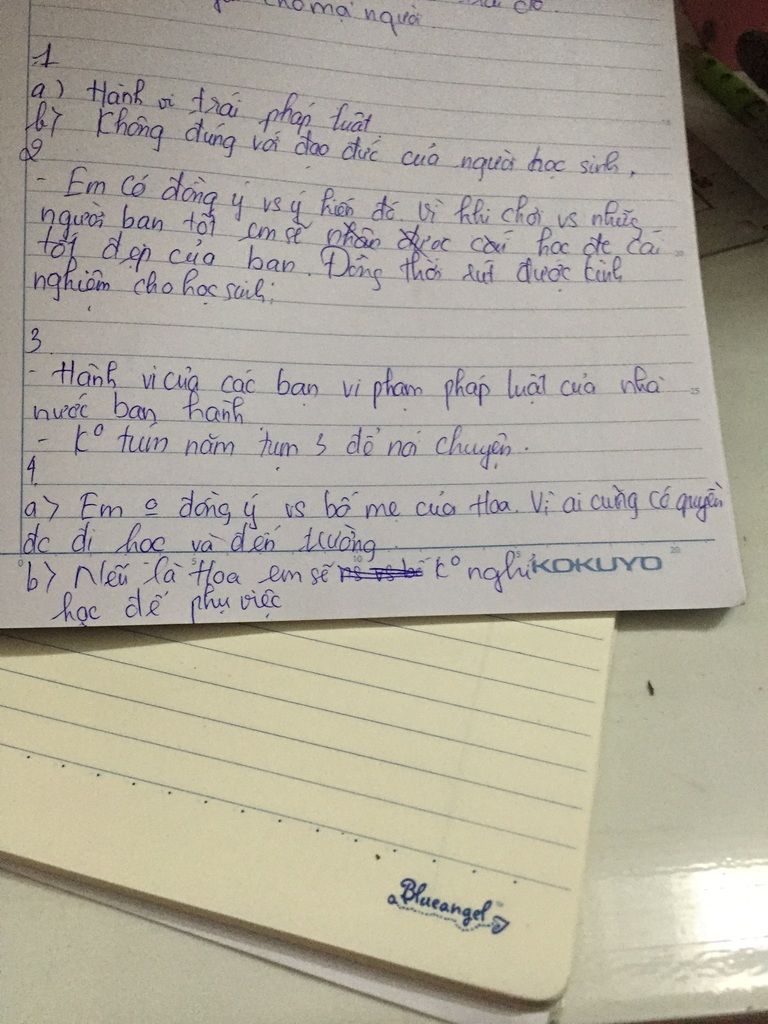 cho mọi người
1
a) Hành vi trái pháp luật.
b) Không đúng với đạo đức của người học sinh.
2
- Em có đồng ý vs ý kiến đó. Vì khi chơi vs những
người bạn tốt em sẽ nhận được học đc cái
tốt đẹp của bạn. Đồng thời rút được kinh
nghiệm cho học sinh.
3
- Hành vi của các bạn vi phạm pháp luật của nhà
nước ban hành
- K° tụm năm tụm 3 để nói chuyện.
4
a) Em đồng ý vs bố mẹ của Hoa. Vì ai cũng có quyền
đc đi học và đến trường.
b) Nếu là Hoa em sẽ k° nghỉ
học để phụ việc
KOKUYO
Blueangel